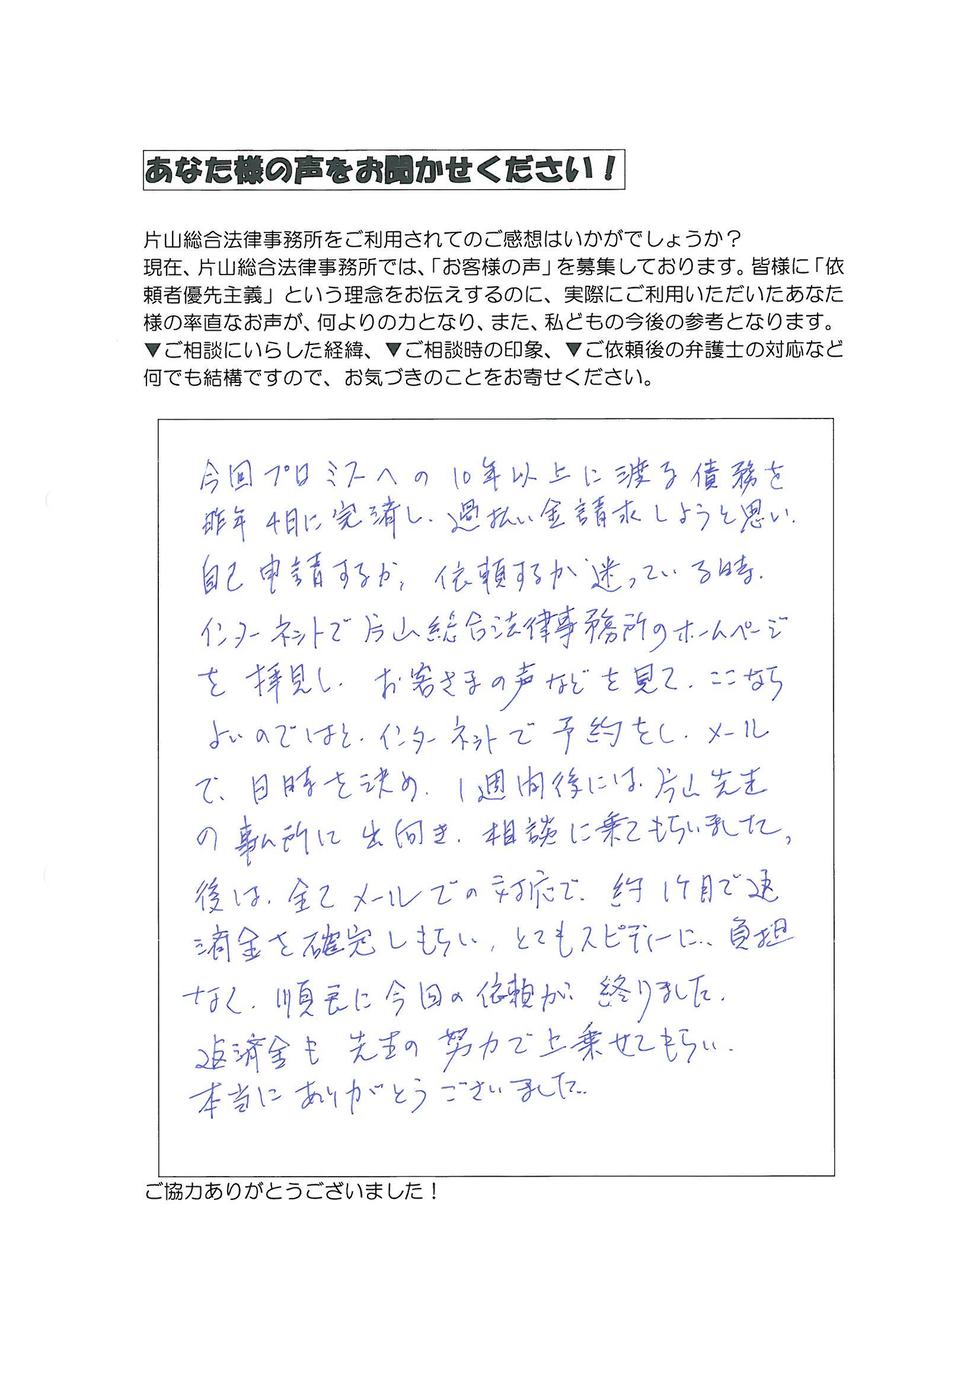 あなた様の声をお聞かせください！
片山総合法律事務所をご利用されてのご感想はいかがでしょうか？
現在、片山総合法律事務所では、「お客様の声」を募集しております。皆様に「依
頼者優先主義」という理念をお伝えするのに、実際にご利用いただいたあなた
様の率直なお声が、何よりの力となり、また、私どもの今後の参考となります。
▼ご相談にいらした経緯、▼ご相談時の印象、▼ご依頼後の弁護士の対応など
何でも結構ですので、お気づきのことをお寄せください。
今回プロミスへの10年以上に渡る債務を
昨年4月に完済し、過払い金請求しようと思い、
自己申請するか、依頼するか迷っている時、
インターネットで片山総合法律事務所のホームページ
を拝見し、お客さまの声などを見て、ここなら
よいのではと、インターネットで予約をし、メール
で、日時を決め、1週間後には、片山先生
の事ム所に出向き、相談に乗てもらいました。
後は、全てメールでの対応で、約1ケ月で返
済金を確定しもらい、とてもスピディーに、負担
なく、順長に今回の依頼が終りました。
返済金も先生の努力で上乗せてもらい、
本当にありがとうございました。
ご協力ありがとうございました！